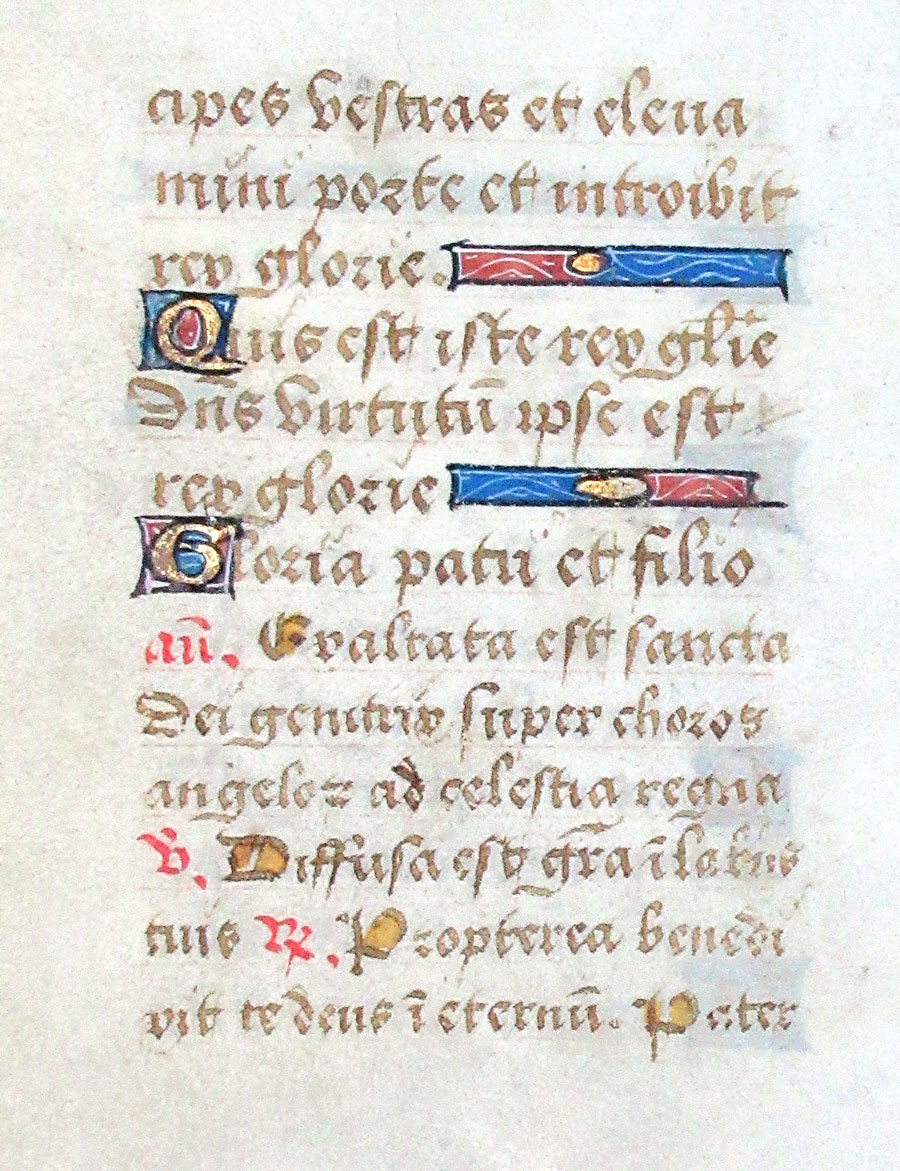 cipes vestras et eleua
mini porte et introibit
rex glorie.
Quis est iste rex gl̄ie
Dn̄s virtutū ipse est
rex glorie
Gloria patri et filio
an̄. Exaltata est sancta
Dei genitrix super choros
angeloꝝ ad celestia regna
℣. Diffusa est gr̄a ī labiis
tuis ℞. Propterea benedi
xit te deus ī eternū. Pater